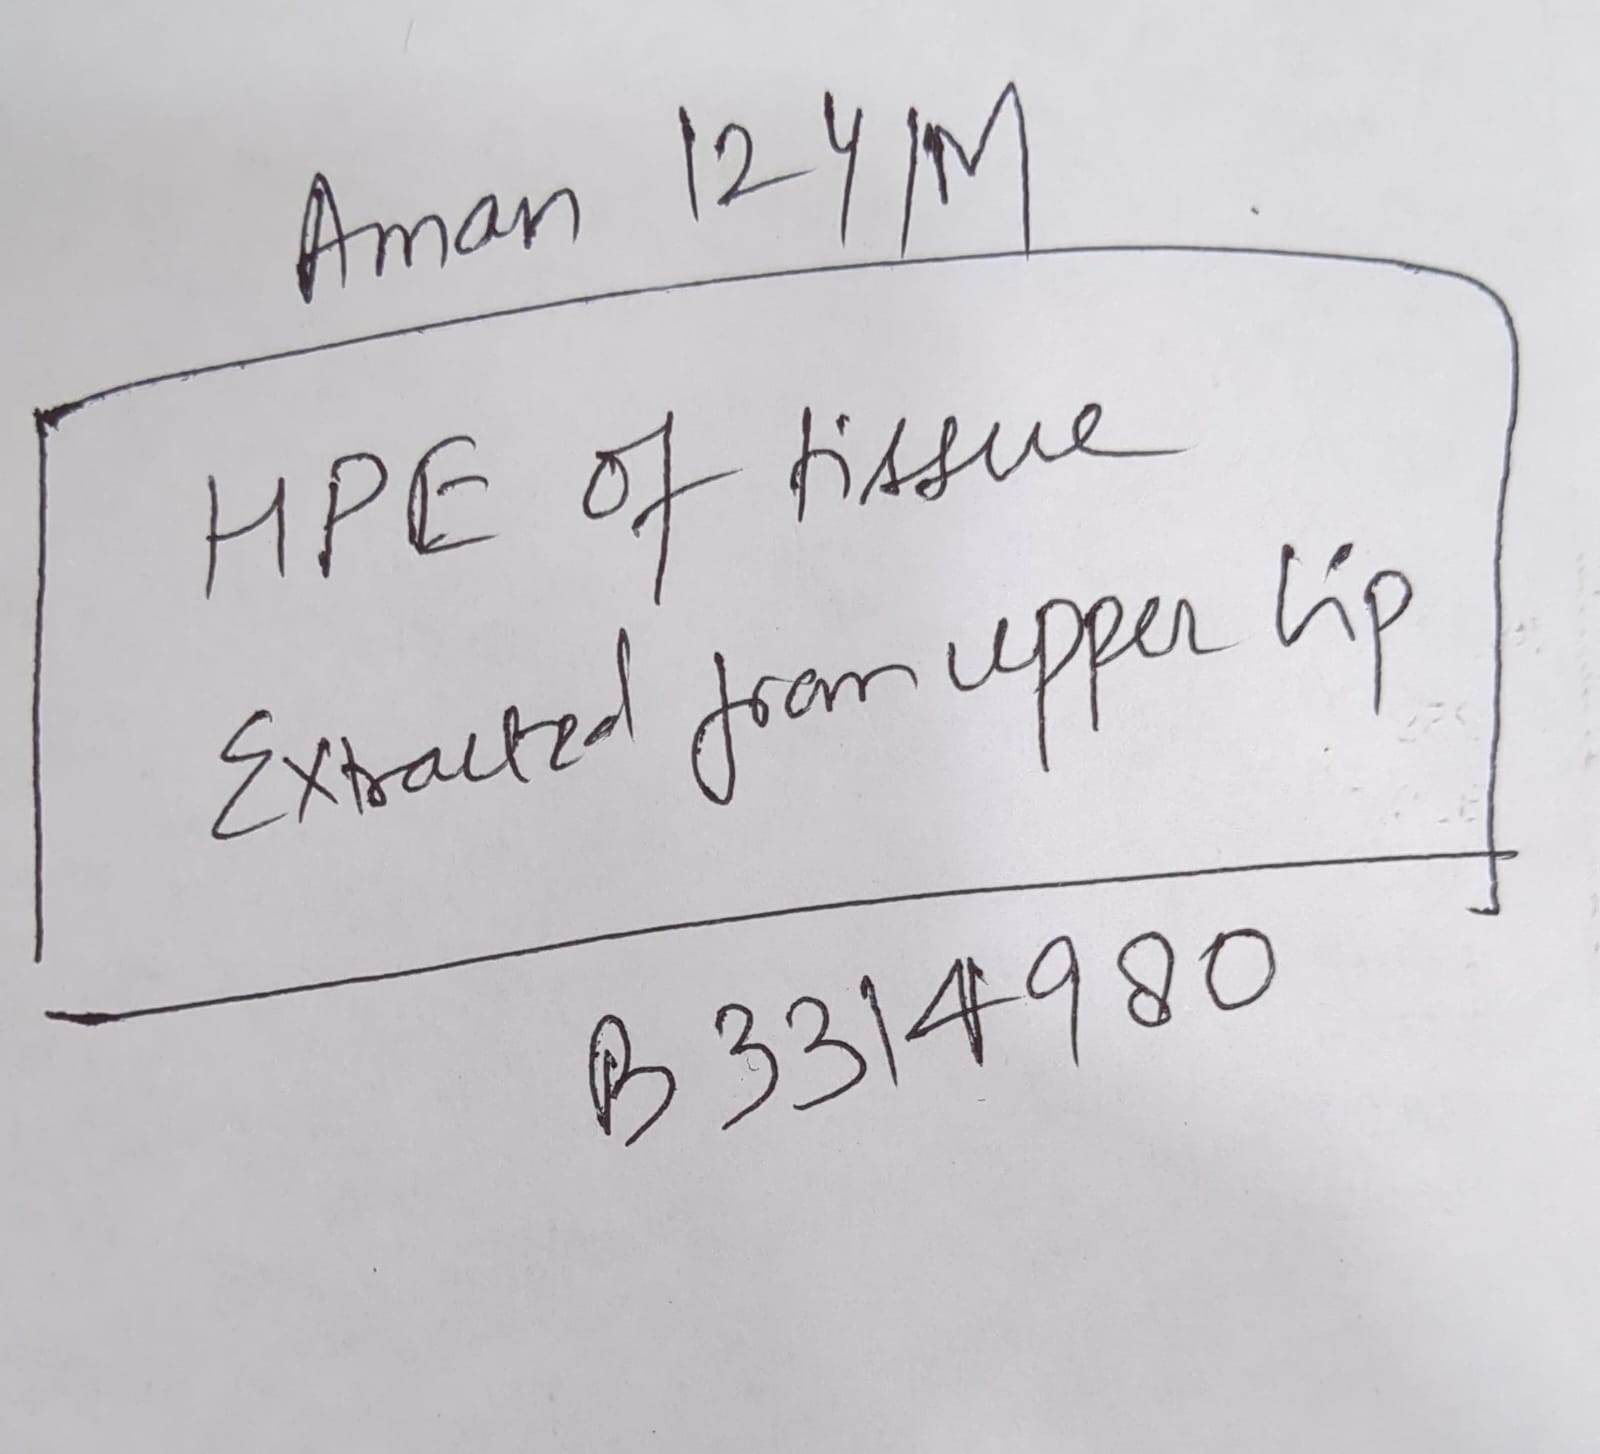 Aman 12Y/M
HPE of tissue
Extracted from upper lip
B3314980